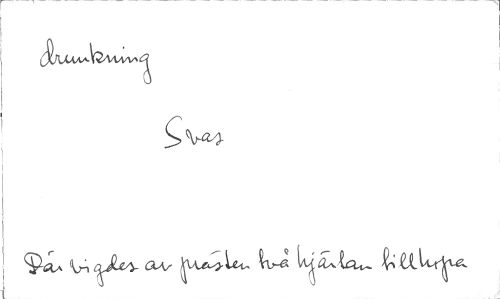 drunkning
Svas
Där vigdes av prästen två hjärtan tillhopa